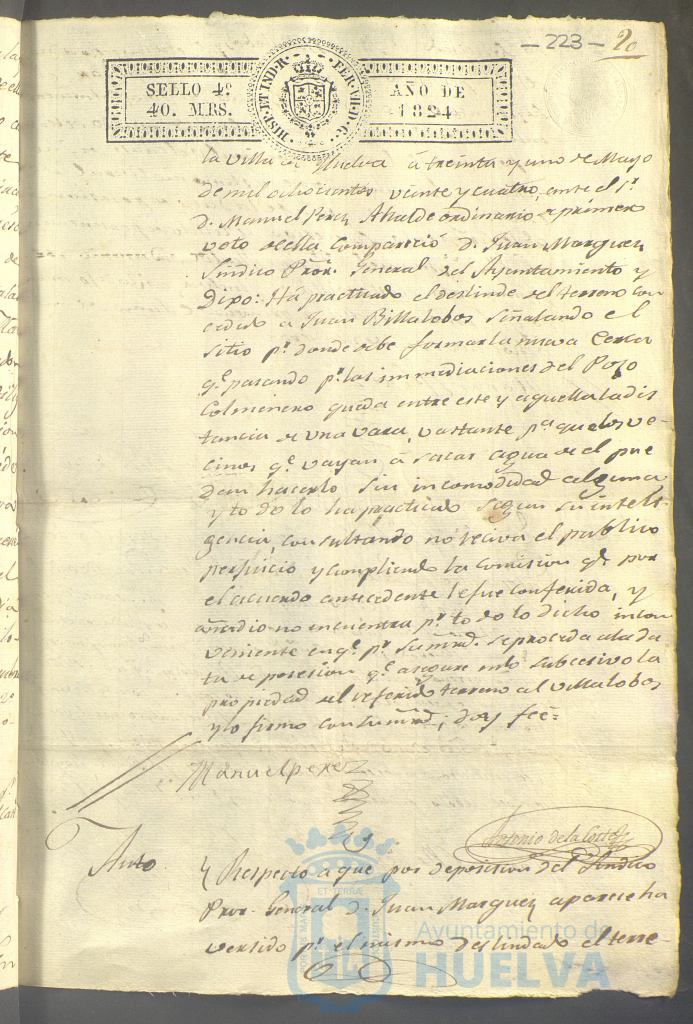 — 223 — 20
SELLO 4º
40. MRS.
HISP. ET IND. R. FER. VII. D. G.
AÑO DE
1824
la villa de Huelva á treinta y uno de Mayo
de mil ochocientos veinte y cuatro, ante el Sr.
D. Manuel Perez Alcalde ordinario de primer
voto de ella Compareció D. Juan Marquez
Sindico Pror. General del Ayuntamiento y
Dixo: Ha practicado el deslinde del terreno con
cedido a Juan Billalobos señalando el
sitio pr. donde debe formar la nueva Cerca
qe. pasando pr. las immediaciones del Pozo
Colmenero queda entre este y aquella la dis
tancia de una vara, vastante pa. que los ve-
cinos qe. vayan á sacar agua de el pue
dan hacerlo sin incomodidad alguna
y todo lo ha practicado segun su inteli-
gencia, consultando no reciva el publico
perjuicio y cumpliendo la comision qe. por
el acuerdo antecedente le fue conferida, y
añadio no encuentra pr. todo lo dicho incon
veniente en qe. pr. su mrd. se proceda a la da
ta de posesion qe. asegure en lo subcesivo la
propiedad del referido terreno al Villalobos
y lo firmo con su mrd; doy fee=
Manuel perez
Antonio de la Corte
Auto
Respecto a que por deposicion del Sindico
Pror. General D. Juan Marquez aparese ha
versido pr. el mismo deslindado el terre-
Ayuntamiento de
HUELVA